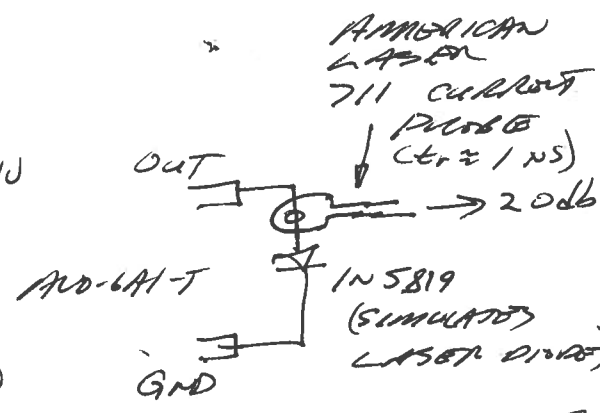 AMERICAN
LASER
711 CURRENT
PROBE
(tr ≈ 1 NS)
OUT
→ 20db
1N5819
(SIMULATES
LASER DIODE)
GND